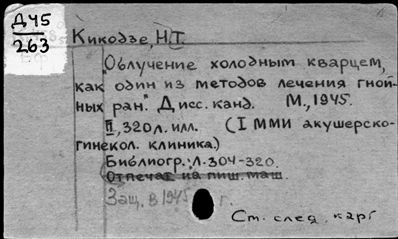 Д45
263
Кикодзе, Н.Т.
Облучение холодным кварцем,
как один из методов лечения гной-
ных ран. Дисс. канд. М., 1945.
II, 320 л. илл. (I ММИ акушерско-
гинекол. клиника.)
Библиогр.: л. 304-320.
Отпечат. на пиш. маш.
Защ. в 1945 г.
См. след. карт